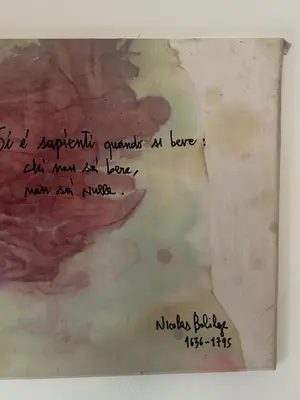 Si è sapienti quando si beve:
chi non sà bere,
non sà nulla.
Nicolas Bolilge
1636-1795